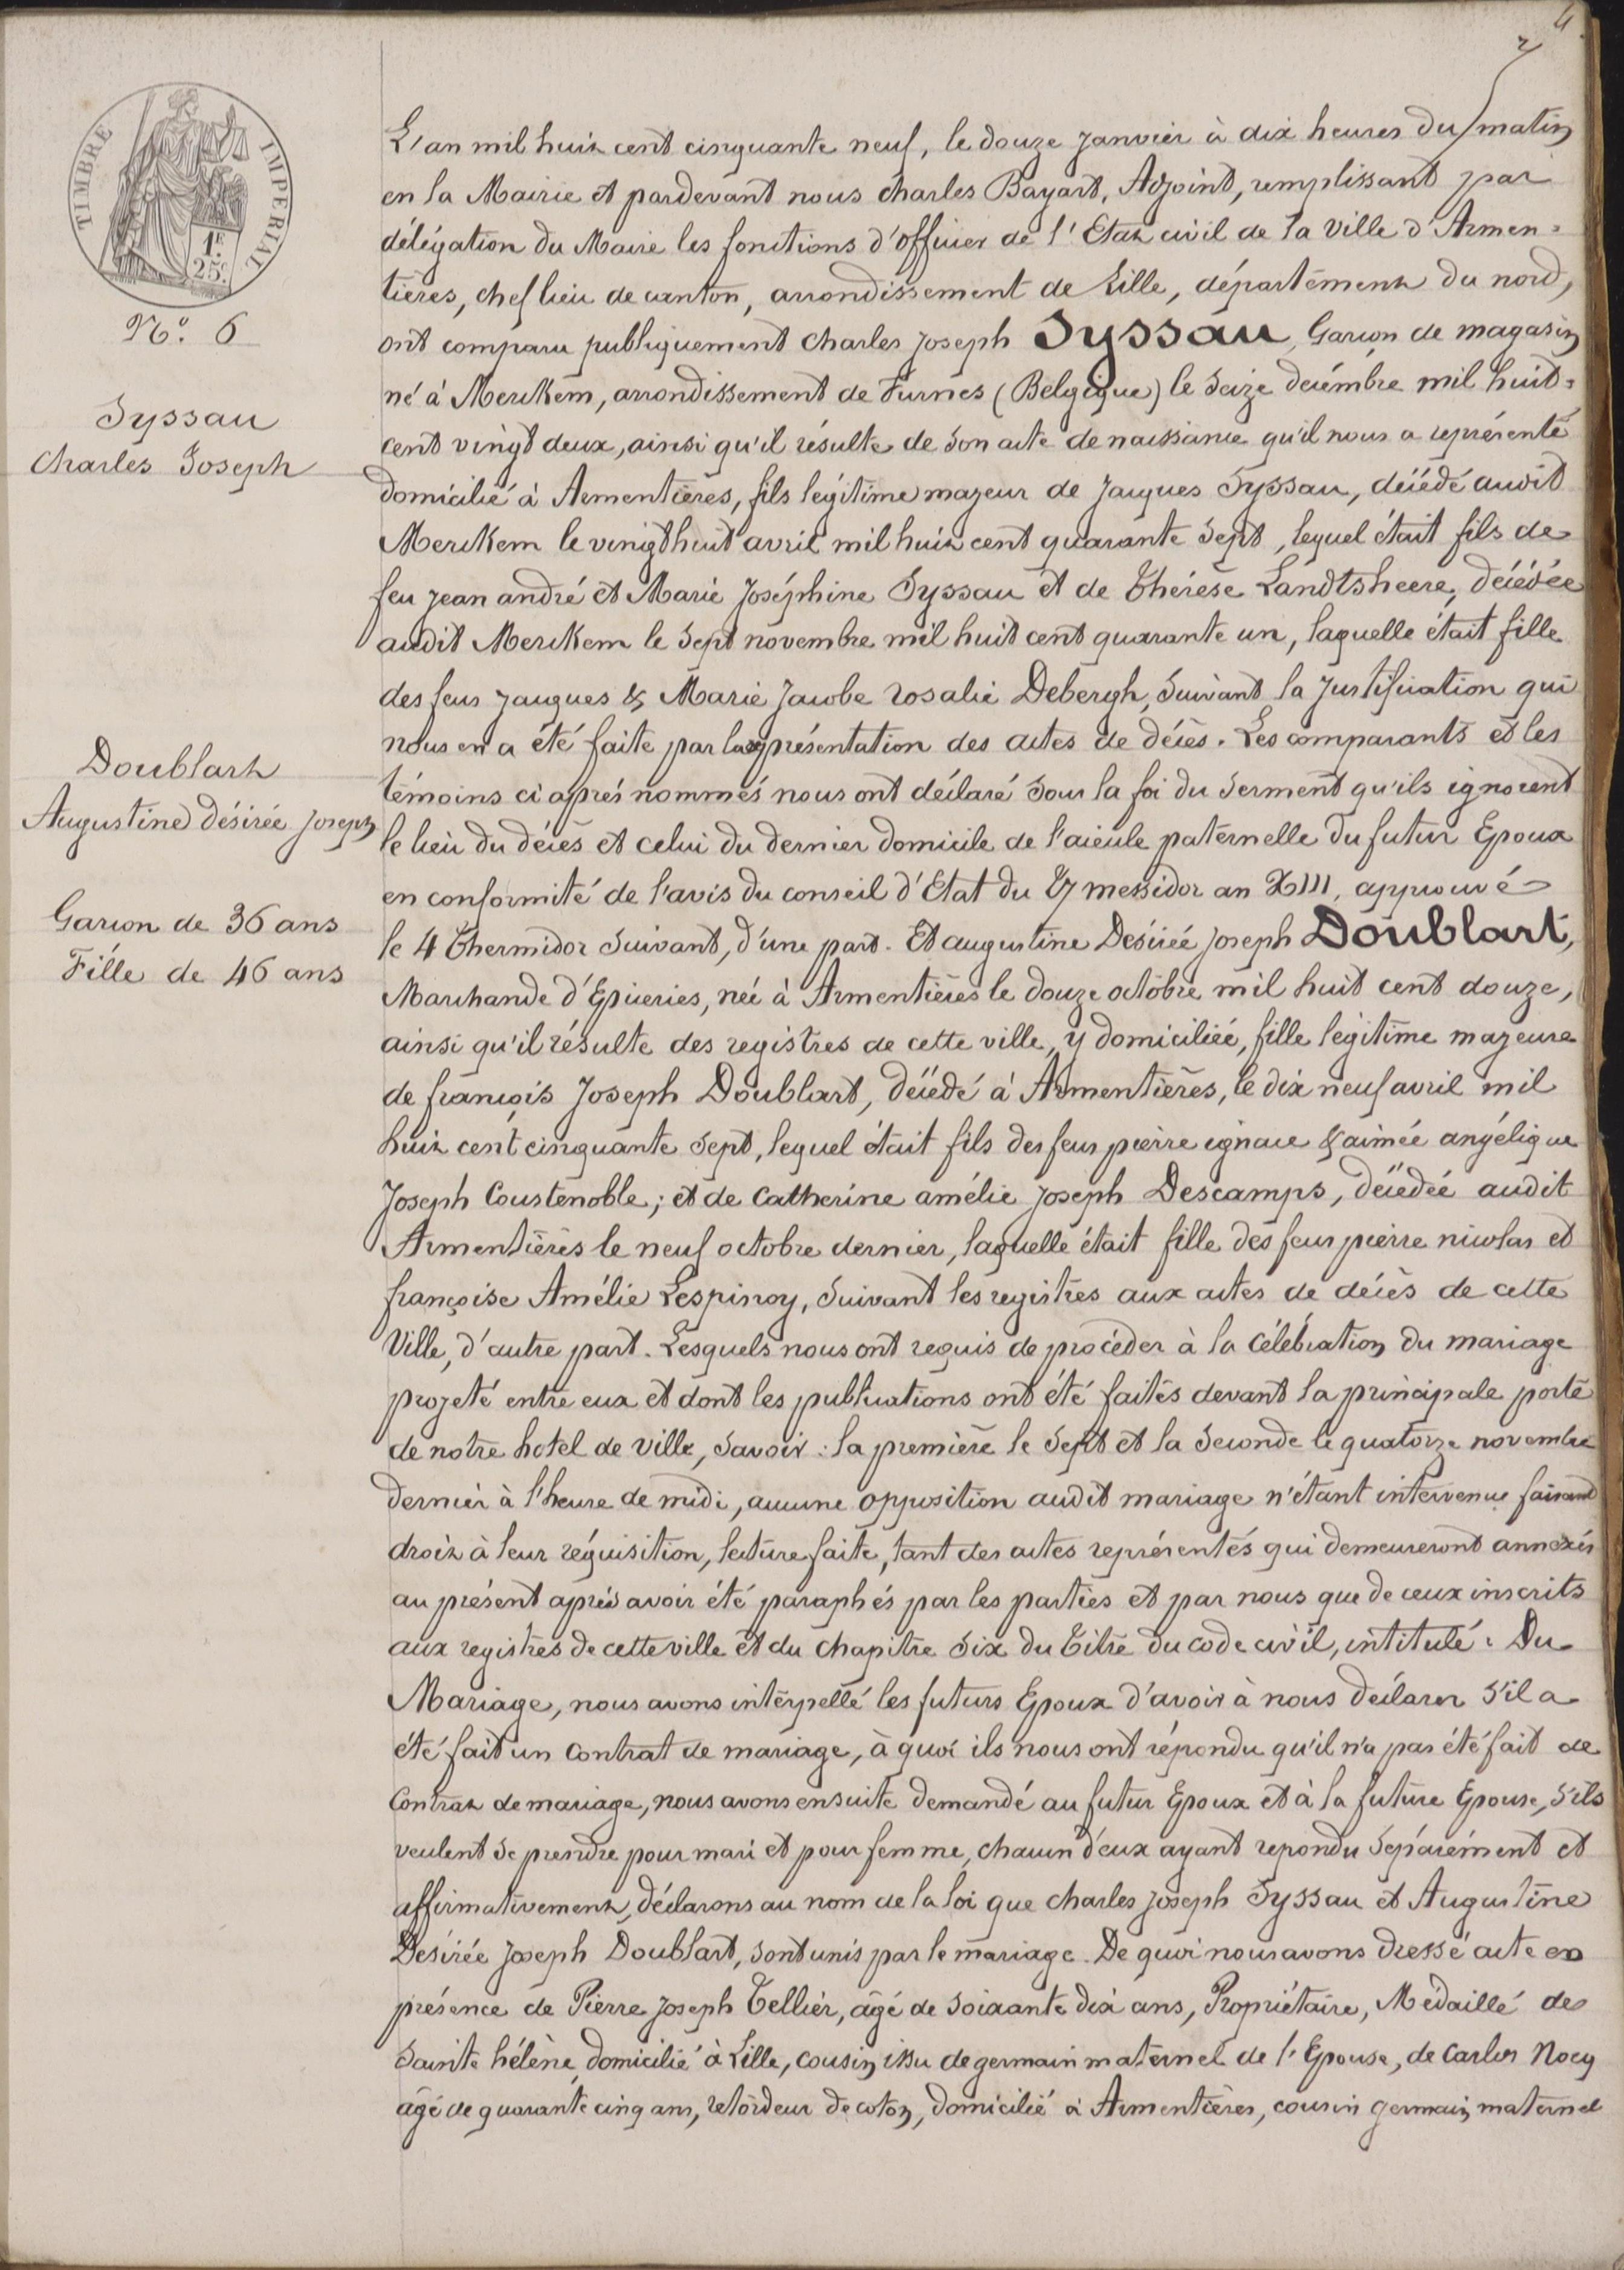 4
2
TIMBRE IMPERIAL
1F.
25c.
N.° 6
Syssau
Charles Joseph
Doublart
Augustine désirée Joseph
Garcon de 36 ans
Fille de 46 ans
L'an mil huit cent cinquante neuf, le douze janvier à dix heures du matin
en la Mairie et pardevant nous charles Bayart, Adjoint, remplissant par
délégation du Maire les fonctions d'officier de l'Etat civil de la ville d'Armen=
tières, chef lieu de canton, arrondissement de Lille, département du nord,
ont comparu publiquement charles joseph Syssau, Garcon de magasin
né à Merckem, arrondissement de Furnes (Belgique) le seize décembre mil huit=
cent vingt deux, ainsi qu'il résulte de son acte de naissance qu'il nous a représenté
domicilié à Armentières, fils légitime majeur de Jacques Syssau, décédé audit
Merckem le vingt huit avril mil huit cent quarante sept, lequel était fils de
feu jean andré et Marie Joséphine Syssau et de Thérèse Landtsheere, décédée
audit Merckem le sept novembre mil huit cent quarante un, laquelle était fille
des feus jacques & Marie Jacobe rosalie Debergh, suivant la justification qui
nous en a été faite par la représentation des actes de décès. Les comparants et les
témoins ci après nommés nous ont déclaré sous la foi du serment qu'ils ignorent
le lieu du décès et celui du dernier domicile de l'aïeule paternelle du futur Epoux
en conformité de l'avis du conseil d'Etat du 27 messidor an XIII, approuvé
le 4 Thermidor suivant, d'une part. Et augustine Desirée joseph Doublart,
Marchande d'Epiceries, née à Armentières le douze octobre mil huit cent douze,
ainsi qu'il résulte des registres de cette ville, y domiciliée, fille légitime majeure
de françois Joseph Doublart, décédé à Armentières, le dix neuf avril mil
huit cent cinquante sept, lequel était fils des feus pierre ignace & aimée angélique
Joseph Coustenoble; et de Catherine amélie joseph Descamps, décédée audit
Armentières le neuf octobre dernier, laquelle était fille des feus pierre nicolas et
françoise Amélie Lespinoy, suivant les registres aux actes de décès de cette
Ville, d'autre part. Lesquels nous ont requis de procéder à la célébration du mariage
projeté entre eux et dont les publications ont été faites devant la principale porte
de notre hotel de ville, savoir: la première le sept et la seconde le quatorze novembre
dernier à l'heure de midi, aucune opposition audit mariage n'étant intervenue faisant
droit à leur réquisition, lecture faite, tant des actes représentés qui demeureront annexés
au présent après avoir été paraphés par les parties et par nous que de ceux inscrits
aux registres de cette ville et du chapitre six du Titre du code civil, intitulé: Du
Mariage, nous avons interpellé les futurs Epoux d'avoir à nous déclarer s'il a
été fait un contrat de mariage, à quoi ils nous ont répondu qu'il n'a pas été fait de
Contrat de mariage, nous avons ensuite demandé au futur Epoux et à la future Epouse, s'ils
veulent se prendre pour mari et pour femme, chacun d'eux ayant repondu séparément et
affirmativement, déclarons au nom de la loi que charles joseph Syssau et Augustine
Desirée Joseph Doublart, sont unis par le mariage. De quoi nous avons dressé acte en
présence de Pierre Joseph Tellier, âgé de soixante dix ans, Propriétaire, Médaillé de
sainte hélène, domicilié à Lille, cousin issu de germain maternel de l'Epouse, de Carlos Nocq
âgé de quarante cinq ans, retordeur de coton, domicilié à Armentières, cousin germain maternel